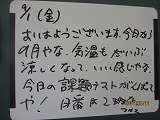 9/1(金)
おはようございます。今日から
9月やな。気温もだいぶ
涼しくなって、いい感じやな。
今日の課題テストがんばって
や!日番は2